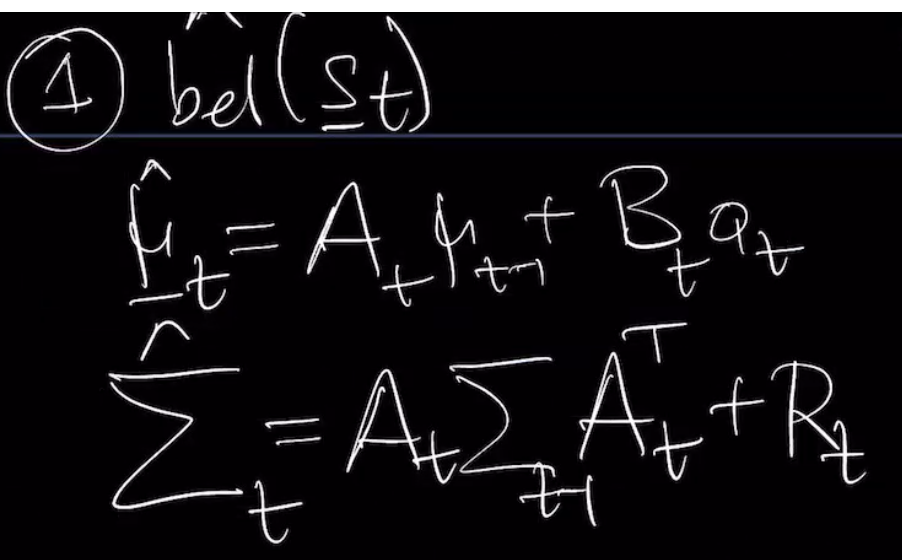 ① b̂el(s̲t)
μ̲̂_t = A_t μ_{t-1} + B_t a_t
Σ̂_t = A_t Σ_{t-1} A_t^T + R_t